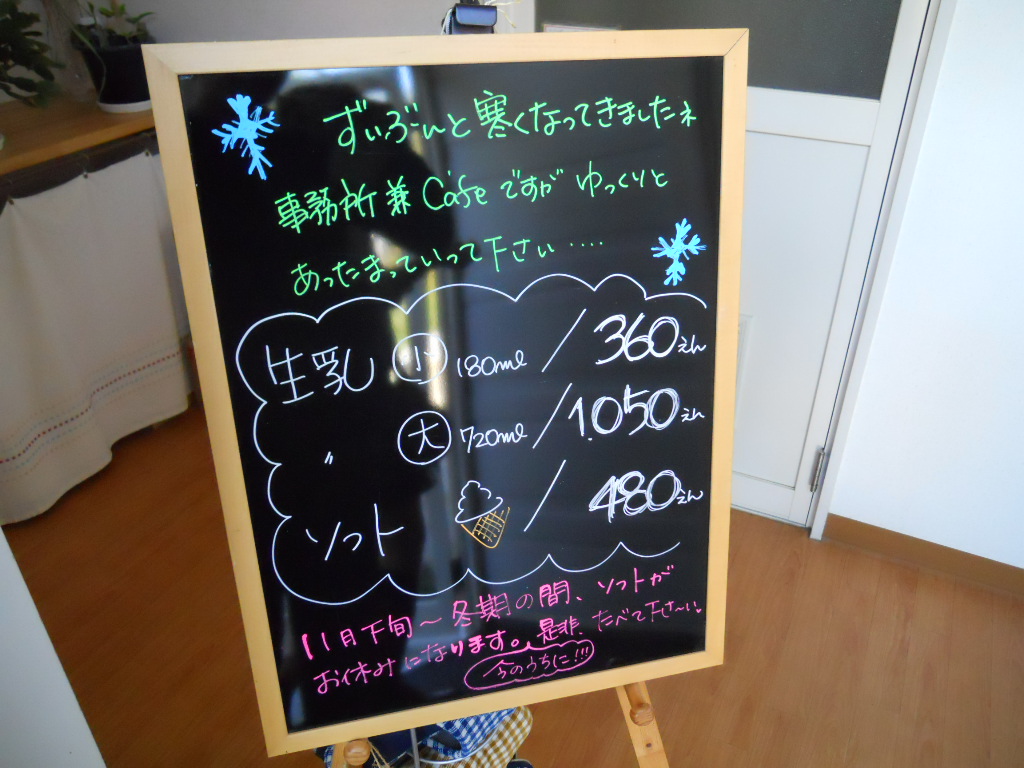 ずいぶんと寒くなってきましたネ
事務所兼Cafeですが ゆっくりと
あったまっていって下さい‥‥
生乳 小 180ml / 360えん
〃 大 720ml / 1.050えん
ソフト / 480えん
11月下旬〜冬期の間、ソフトが
お休みになります。是非、たべて下さ〜い。
今のうちに!!!